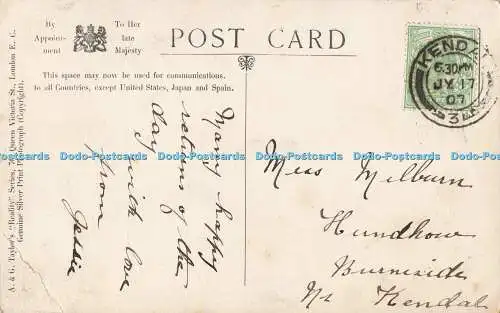 By
Appoint-
ment
To Her
late
Majesty
POST CARD
This space may now be used for communications
to all Countries, except United States, Japan and Spain.
A. & G. Taylor's "Reality" Series, 70 Queen Victoria St., London E. C.
Genuine Silver Print Photograph (Copyright).
Many happy
returns of the
day with love
from
Jessie
KENDAL
6.30PM
JY 17
07
Miss Milburn
Hundhow
Burneside
Nr Kendal
Dodo-Postcards Dodo-Postcards Dodo-Postcards Dodo-Postcards